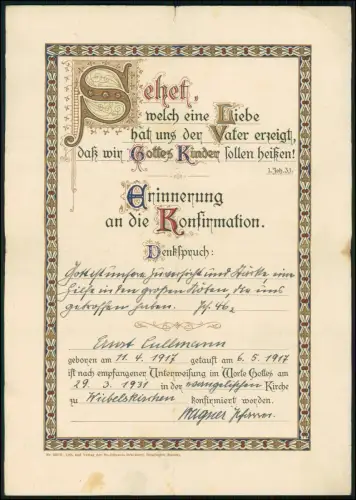 Sehet,
welch eine Liebe
hat uns der Vater erzeigt,
daß wir Gottes Kinder sollen heißen!
1. Joh. 3,1.
Erinnerung
an die Konfirmation.
Denkspruch:
Gott ist unsere Zuversicht und Stärke eine
Hilfe in den großen Nöten, die uns
getroffen haben. Ps. 46,2
Ernst Cullmann
geboren am 11. 4. 1917 getauft am 6. 5. 1917
ist nach empfangener Unterweisung im Worte Gottes am
29. 3. 1931 in der evangelischen Kirche
zu Wiebelskirchen konfirmiert worden.
Wagner Pfarrer.